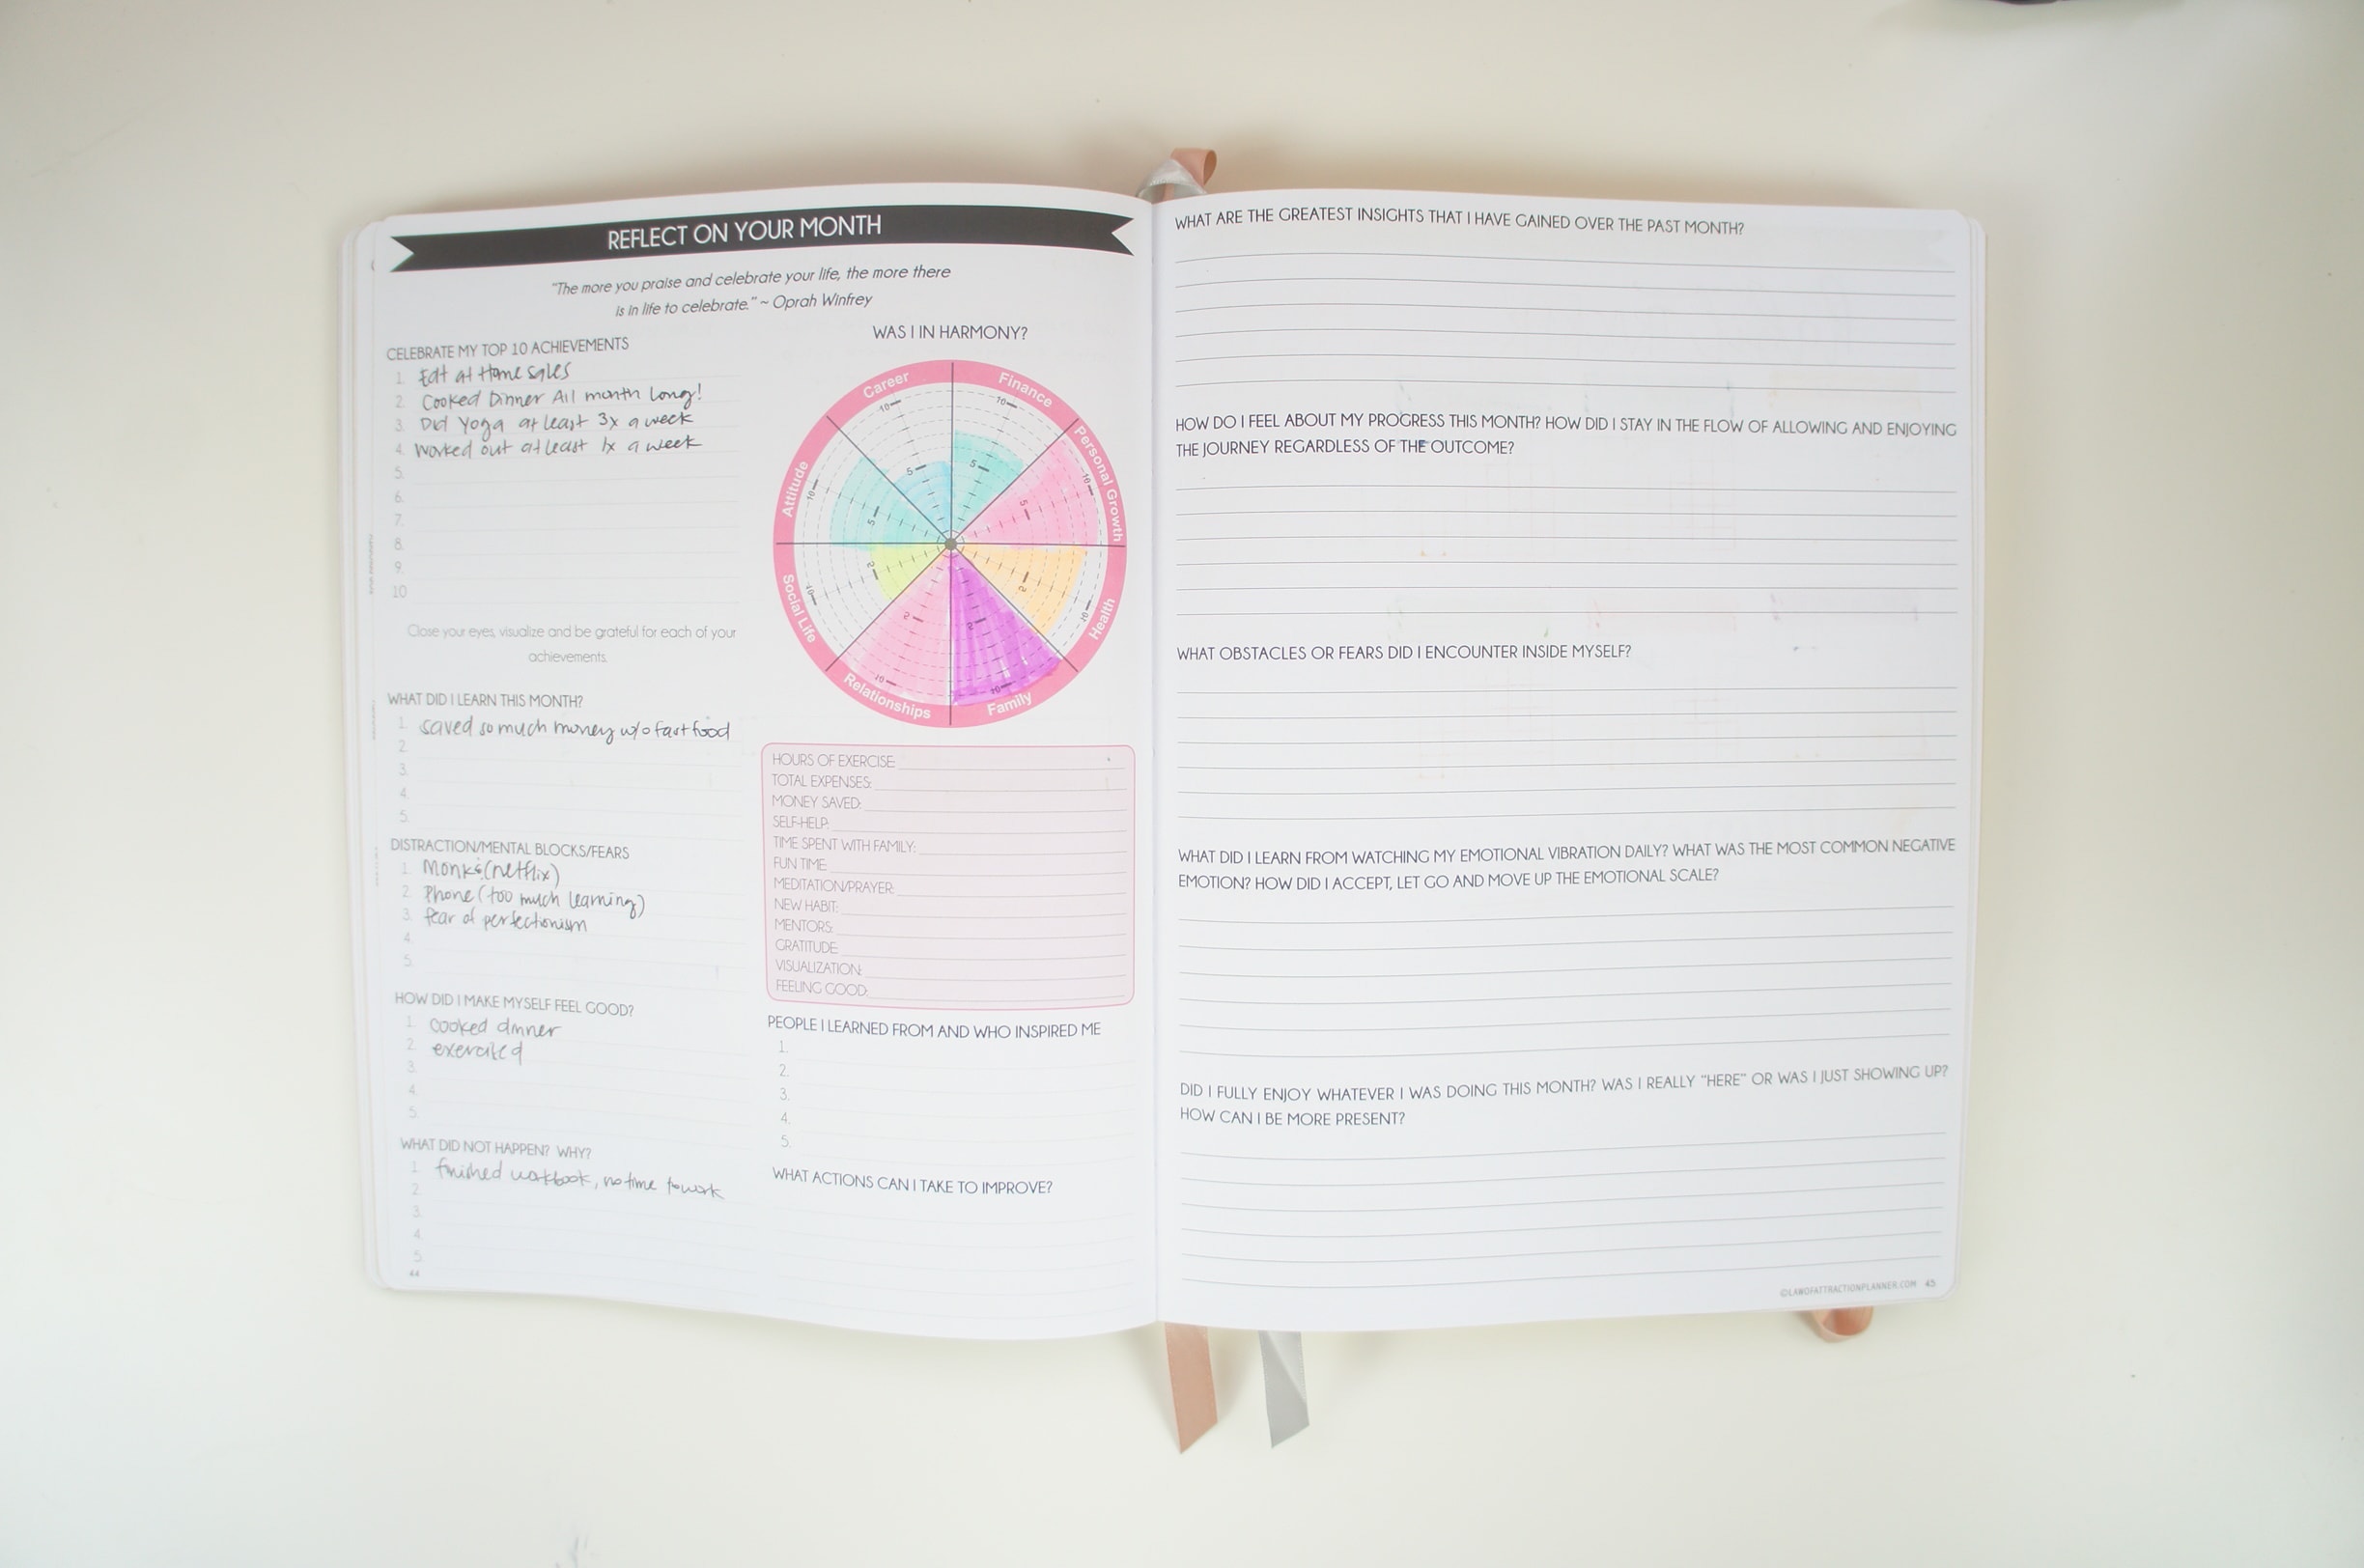 REFLECT ON YOUR MONTH
"The more you praise and celebrate your life, the more there
is in life to celebrate." ~ Oprah Winfrey
CELEBRATE MY TOP 10 ACHIEVEMENTS
1. Eat at Home Sales
2. Cooked Dinner All month long!
3. Did Yoga at least 3x a week
4. Worked out at least 1x a week
5.
6.
7.
8.
9.
10
Close your eyes, visualize and be grateful for each of your
achievements.
WHAT DID I LEARN THIS MONTH?
1. saved so much money w/o fast food
2.
3.
4.
5.
DISTRACTION/MENTAL BLOCKS/FEARS
1. Monk (netflix)
2. Phone (too much learning)
3. fear of perfectionism
4.
5.
HOW DID I MAKE MYSELF FEEL GOOD?
1. cooked dinner
2. exercised
3.
4.
5.
WHAT DID NOT HAPPEN? WHY?
1. finished workbook, no time to work
2.
3.
4.
5
44
WAS I IN HARMONY?
Career
10
5
Finance
10
5
Personal Growth
10
5
Health
10
5
Family
10
5
Relationships
10
5
Social Life
10
5
Attitude
10
5
HOURS OF EXERCISE:
TOTAL EXPENSES:
MONEY SAVED:
SELF-HELP:
TIME SPENT WITH FAMILY:
FUN TIME:
MEDITATION/PRAYER:
NEW HABIT:
MENTORS:
GRATITUDE:
VISUALIZATION:
FEELING GOOD:
PEOPLE I LEARNED FROM AND WHO INSPIRED ME
1.
2.
3.
4.
5.
WHAT ACTIONS CAN I TAKE TO IMPROVE?
WHAT ARE THE GREATEST INSIGHTS THAT I HAVE GAINED OVER THE PAST MONTH?
HOW DO I FEEL ABOUT MY PROGRESS THIS MONTH? HOW DID I STAY IN THE FLOW OF ALLOWING AND ENJOYING
THE JOURNEY REGARDLESS OF THE OUTCOME?
WHAT OBSTACLES OR FEARS DID I ENCOUNTER INSIDE MYSELF?
WHAT DID I LEARN FROM WATCHING MY EMOTIONAL VIBRATION DAILY? WHAT WAS THE MOST COMMON NEGATIVE
EMOTION? HOW DID I ACCEPT, LET GO AND MOVE UP THE EMOTIONAL SCALE?
DID I FULLY ENJOY WHATEVER I WAS DOING THIS MONTH? WAS I REALLY "HERE" OR WAS I JUST SHOWING UP?
HOW CAN I BE MORE PRESENT?
©LAWOFATTRACTIONPLANNER.COM 45